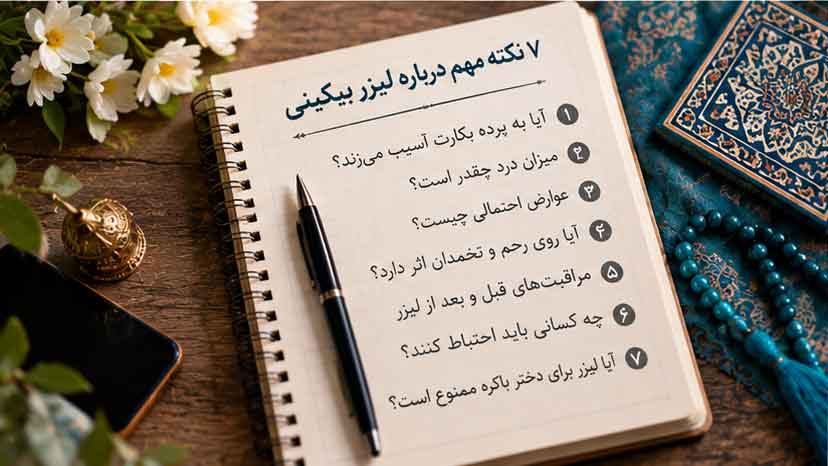 ۷ نکته مهم درباره لیزر بیکینی
۱ آیا به پرده بکارت آسیب می‌زند؟
۲ میزان درد چقدر است؟
۳ عوارض احتمالی چیست؟
۴ آیا روی رحم و تخمدان اثر دارد؟
۵ مراقبت‌های قبل و بعد از لیزر
۶ چه کسانی باید احتیاط کنند؟
۷ آیا لیزر برای دختر باکره ممنوع است؟